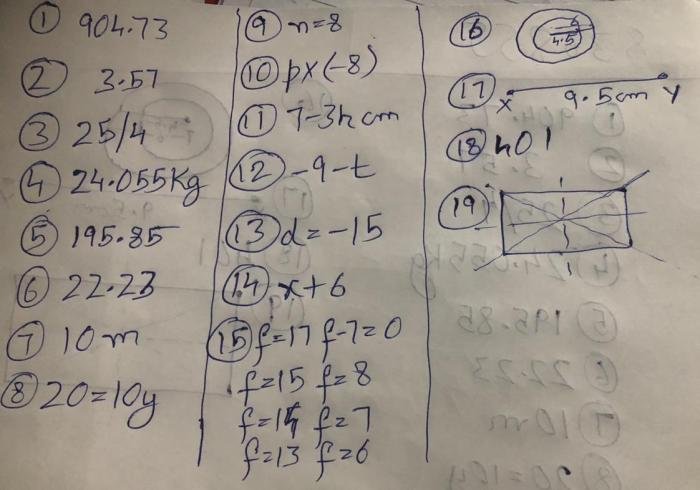 ① 904.73
② 3.57
③ 25/4
④ 24.055Kg
⑤ 195.85
⑥ 22.23
⑦ 10m
⑧ 20=10y
⑨ n=8
⑩ px(-8)
⑪ 7-3h cm
⑫ -9-t
⑬ d=-15
⑭ x+6
⑮ f=17 f-7=0
f=15 f=8
f=14 f=7
f=13 f=6
⑯ 6
4.5
⑰ X 9.5cm Y
⑱ hol
⑲